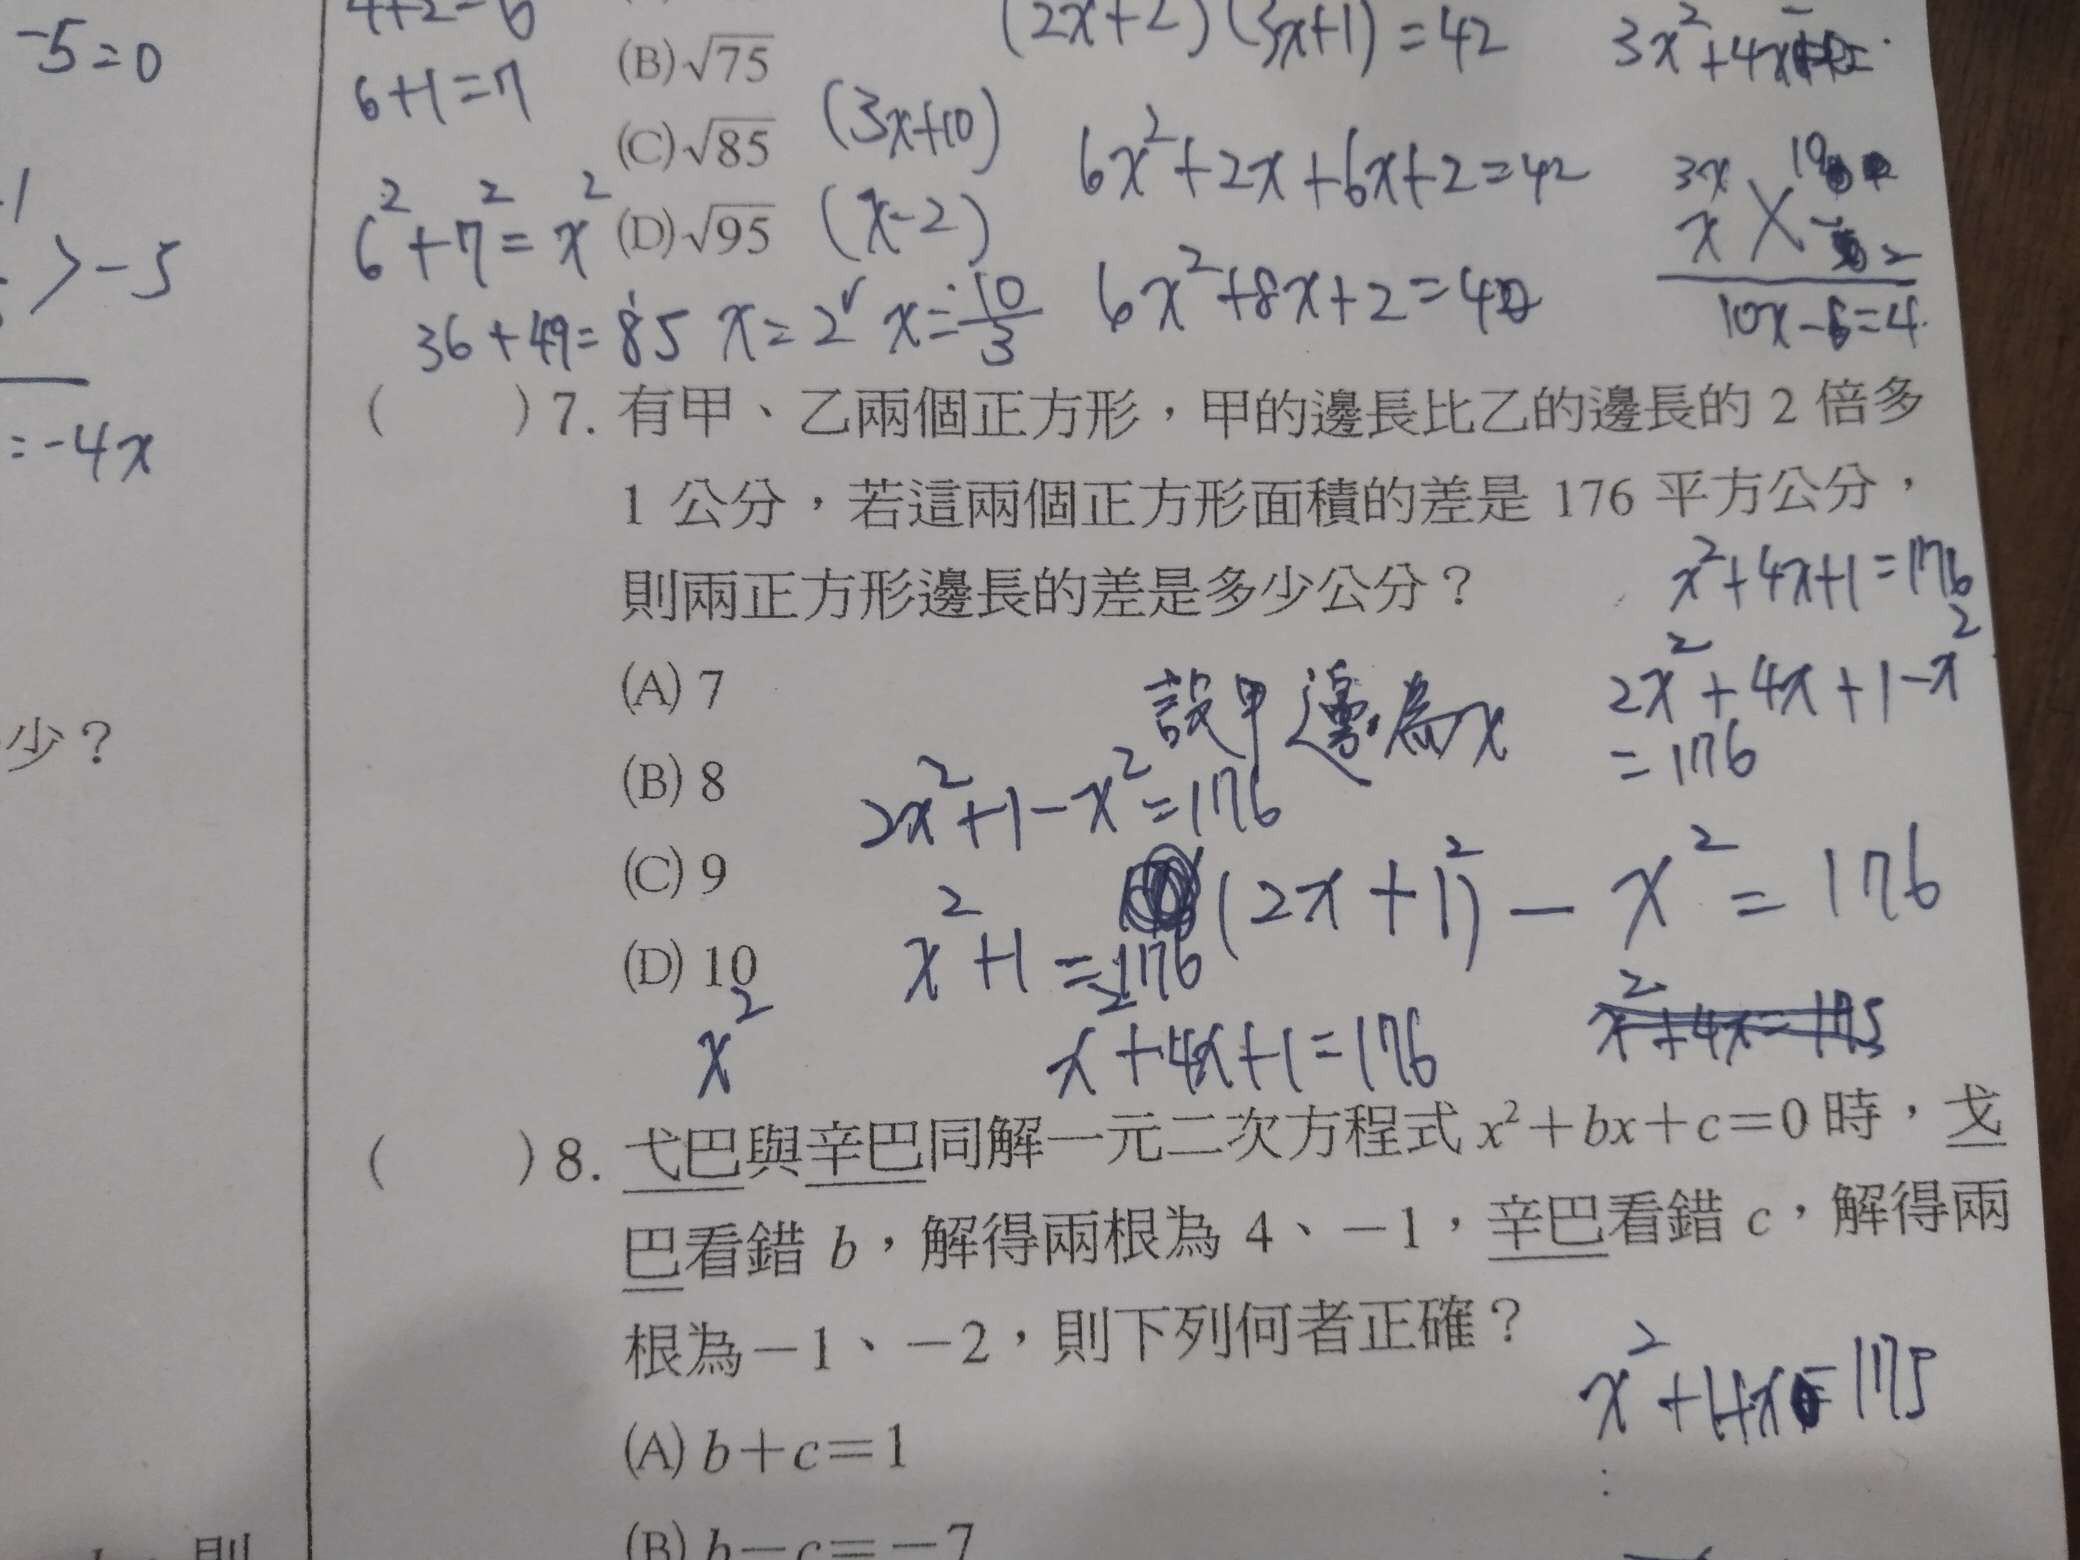 -5=0
>-5
=-4x
少？
則
4+2=6
6+1=7
6²+7²=x²
36+49=85
(B)√75
(C)√85
(D)√95
(3x+10)
(x-2)
x=2 x=-10/3
(2x+2)(3x+1)=42
6x²+2x+6x+2=42
6x²+8x+2=42
3x²+4x
3x 10
x -2
10x-6=4
( )7. 有甲、乙兩個正方形，甲的邊長比乙的邊長的 2 倍多
1 公分，若這兩個正方形面積的差是 176 平方公分，
則兩正方形邊長的差是多少公分？
(A) 7
(B) 8
(C) 9
(D) 10
x²+4x+1=176
2x²+4x+1-x²
=176
設甲邊為x
2x²+1-x²=176
(2x+1)²-x²=176
x²+1=176
x²
x²+4x+1=176
x²+4x=175
( )8. 弋巴與辛巴同解一元二次方程式 x²+bx+c=0 時，戈
巴看錯 b，解得兩根為 4、-1，辛巴看錯 c，解得兩
根為-1、-2，則下列何者正確？
x²+4x=175
(A) b+c=1
(B) b-c=-7